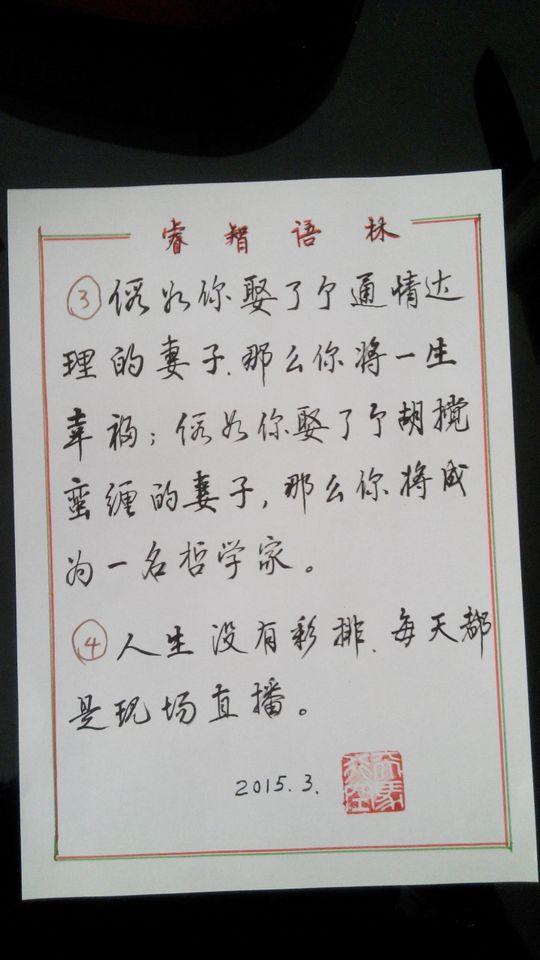 睿智语林
③假如你娶了个通情达
理的妻子、那么你将一生
幸福；假如你娶了个胡搅
蛮缠的妻子，那么你将成
为一名哲学家。
④人生没有彩排、每天都
是现场直播。
2015.3.